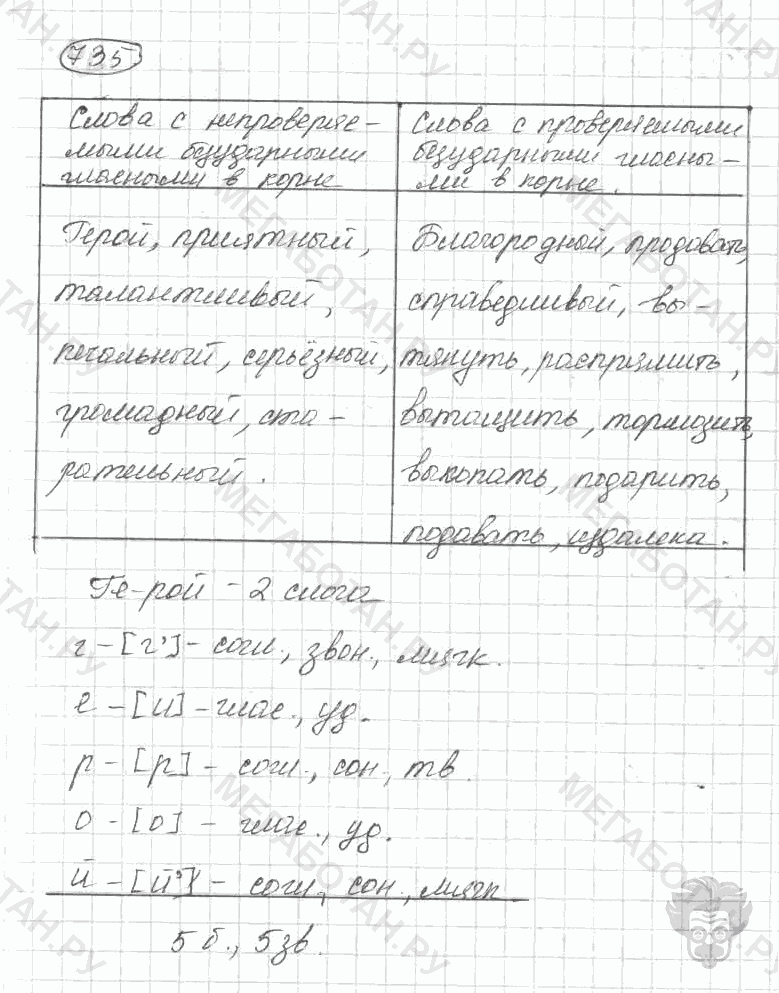 735
Слова с непроверяе-
мыми безударными
гласными в корне
Слова с проверяемыми
безударными гласны-
ми в корне.
Герой, приятный,
талантливый,
печальный, серьёзный,
громадный, ста-
рательный.
Благородной, продовать,
справедливый, вы-
тянуть, распрямить,
вытащить, тормозить,
выкопать, подарить,
подавать, издалека.
Ге-рой - 2 слога
г - [г'] - согл., звон., мягк.
е - [и] - глас., уд.
р - [р] - согл., сон., тв.
о - [о] - глас., уд.
й - [й'] - согл., сон., мягк.
5 б., 5 зв.
МЕГАБОТАН.РУ